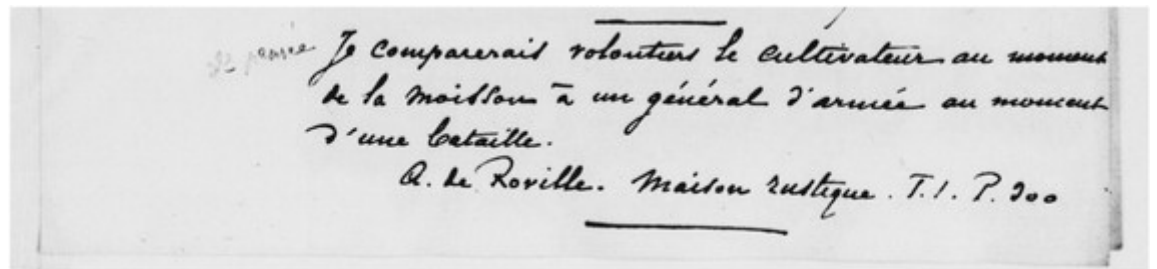 Je comparerais volontiers le cultivateur au moment
de la moisson à un général d'armée au moment
d'une bataille.
A. de Roville. Maison rustique. T. 1. P. 300